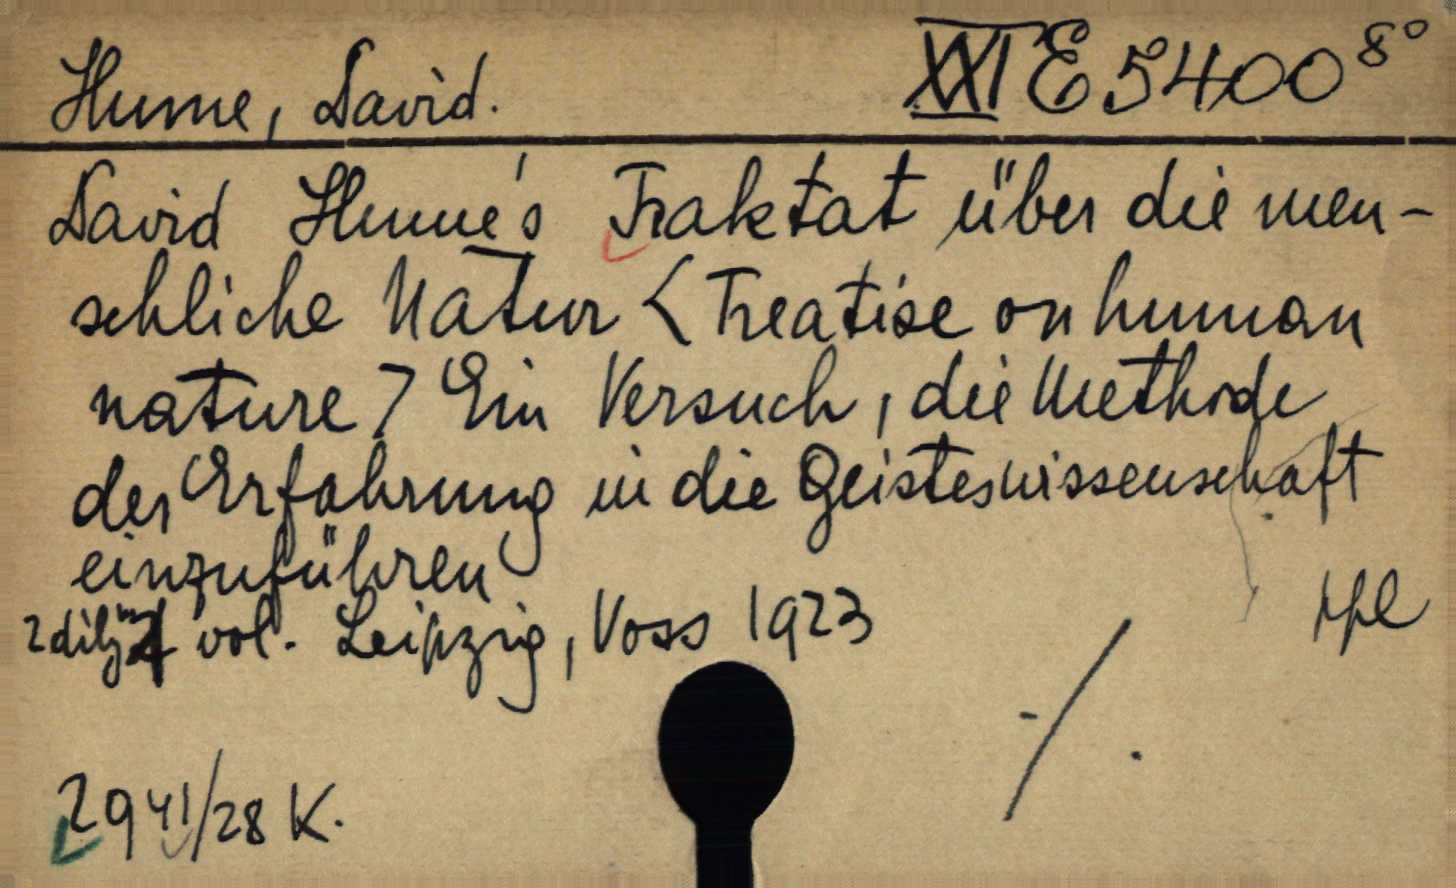 Hume, David. XXI E 5400 8°
David Hume's Traktat über die men-
schliche Natur < Treatise on human
nature > Ein Versuch, die Methode
der Erfahrung in die Geisteswissenschaft
einzuführen
2 díly in 1 vol. Leipzig, Voss 1923
2941/28 K.